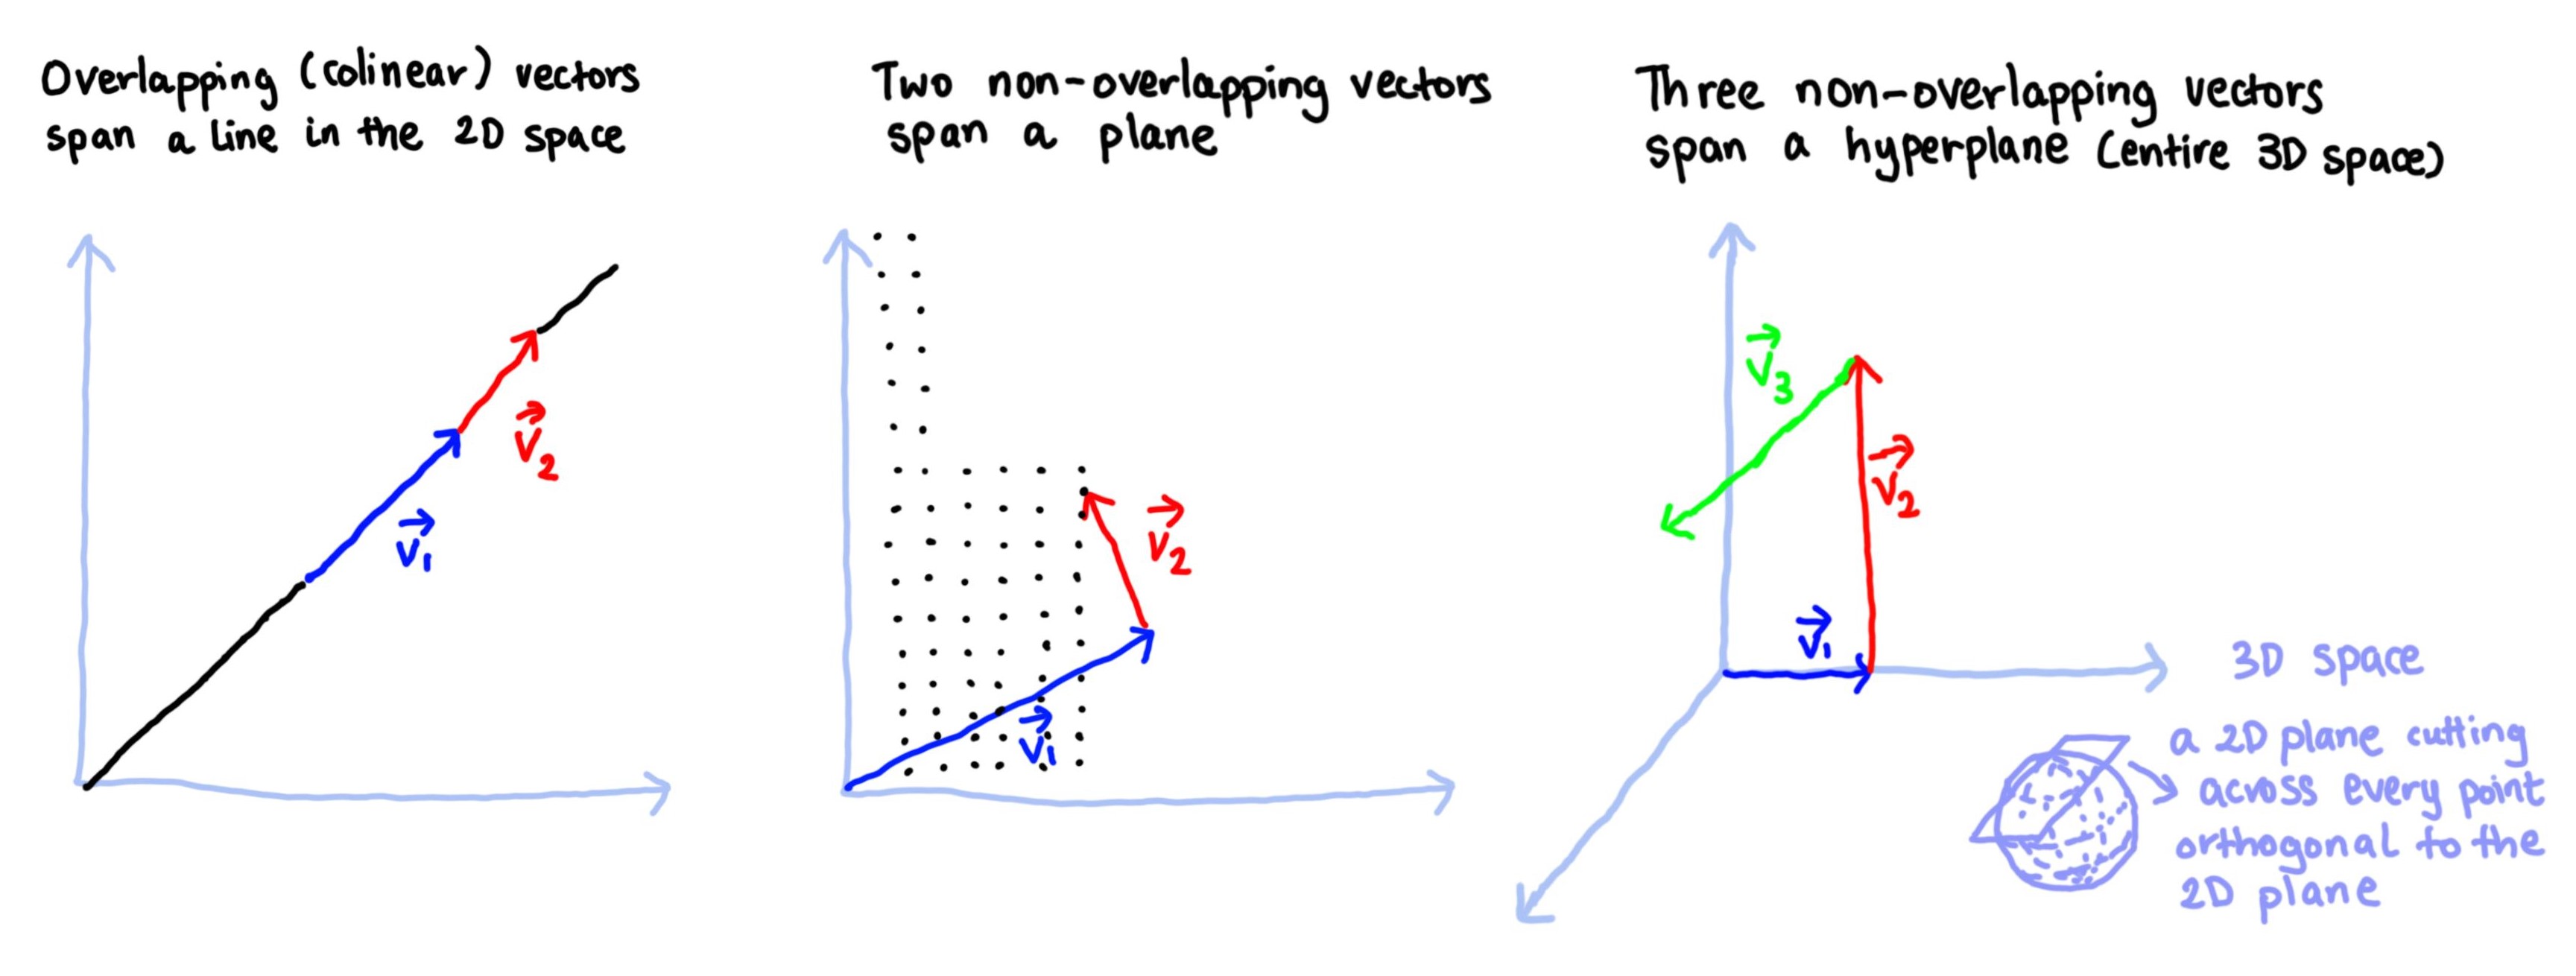 Overlapping (colinear) vectors
span a line in the 2D space
v⃗₂
v⃗₁
Two non-overlapping vectors
span a plane
v⃗₂
v⃗₁
Three non-overlapping vectors
span a hyperplane (entire 3D space)
v⃗₃
v⃗₂
v⃗₁
3D space
a 2D plane cutting
across every point
orthogonal to the
2D plane